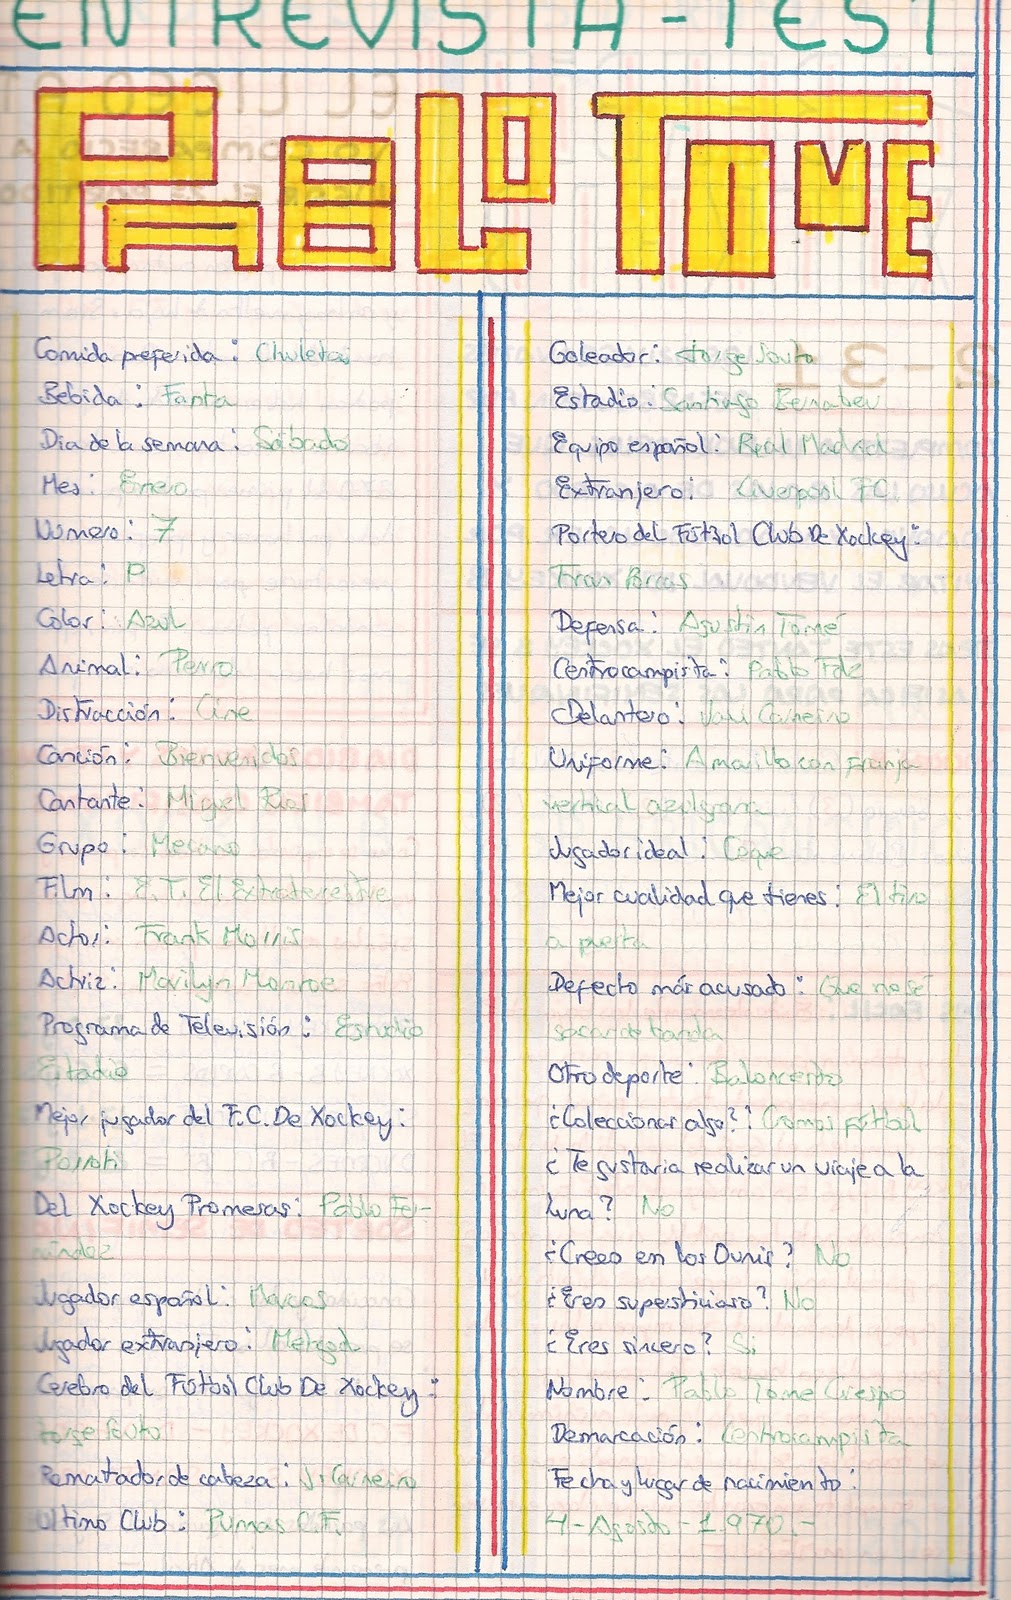 ENTREVISTA-TEST
PABLO TOME
Comida preferida: Chuletas
Bebida: Fanta
Dia de la semana: Sábado
Mes: Enero
Número: 7
Letra: P
Color: Azul
Animal: Perro
Distracción: Cine
Canción: Bienvenidos
Cantante: Miguel Rios
Grupo: Mecano
Film: E.T. El Extraterrestre
Actor: Frank Morris
Actriz: Marilyn Monroe
Programa de Televisión: Estudio
Estadio
Mejor jugador del F.C. De Xockey:
Del Xockey Promesas: Pablo Fer-
nández
Jugador español: Marcos
Jugador extranjero: Metgod
Cerebro del Fútbol Club De Xockey:
Jorge Souto
Rematador de cabeza: J. Carneiro
Ultimo Club: Pumas C.F.
Goleador: Jorge Souto
Estadio: Santiago Bernabeu
Equipo español: Real Madrid
Extranjero: Liverpool FC.
Portero del Fútbol Club De Xockey:
Fran
Defensa: Agustin Tomé
Centrocampista: Pablo Fdez
Delantero: Javi Carneiro
Uniforme: Amarillo con franja
vertical azulgrana
Jugador ideal: Coque
Mejor cualidad que tienes: El tiro
a puerta
Defecto más acusado: Que no sé
sacar de banda
Otro deporte: Baloncesto
¿Coleccionas algo?: Cromos fútbol
¿Te gustaria realizar un viaje a la
luna? No
¿Crees en los Ovnis? No
¿Eres supersticioso? No
¿Eres sincero? Si
Nombre: Pablo Tome Crespo
Demarcación: Centrocampista
Fecha y lugar de nacimiento:
4-Agosto-1.970.-